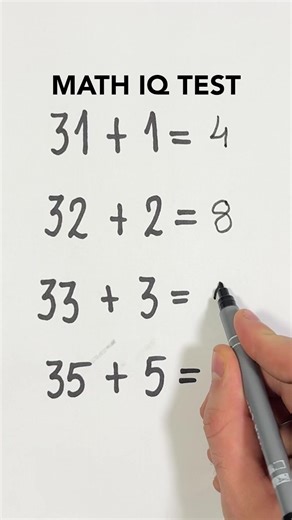 MATH IQ TEST
31 + 1 = 4
32 + 2 = 8
33 + 3 =
35 + 5 =